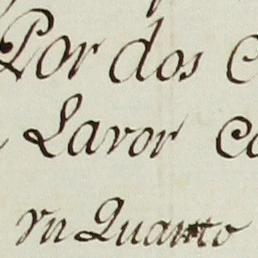 Por dos
Lavor
vn Quarto